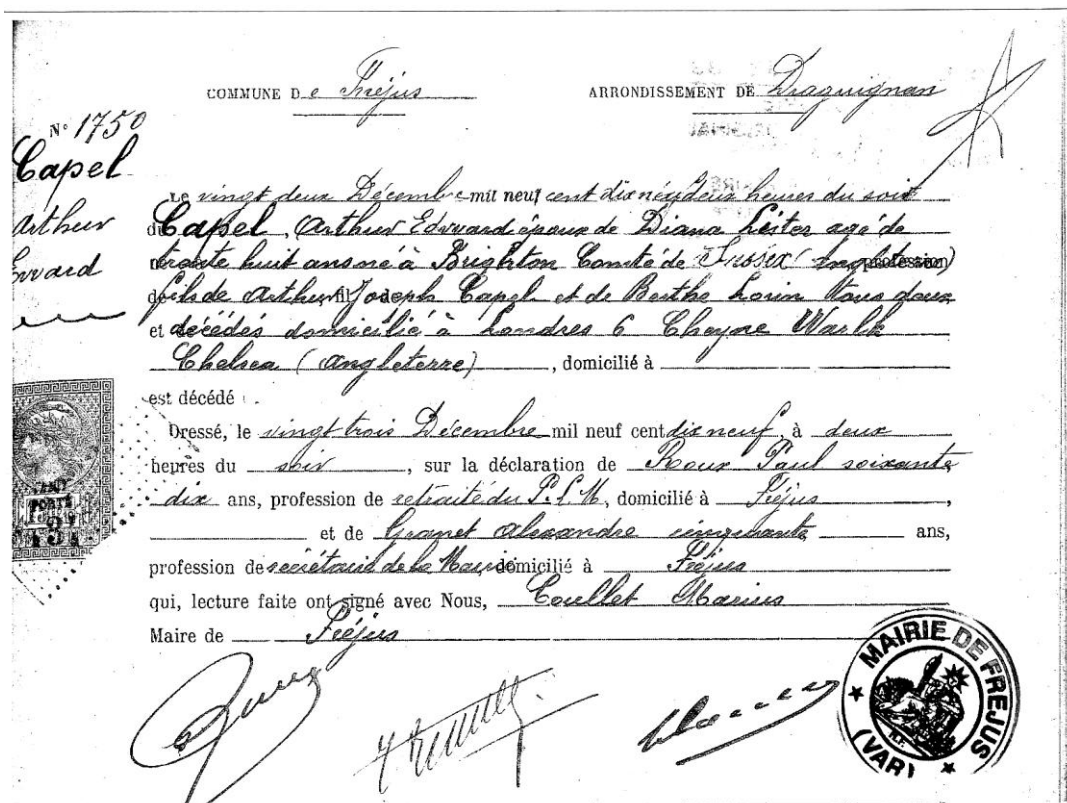 COMMUNE De Fréjus
ARRONDISSEMENT DE Draguignan
N° 1750
Capel
Arthur
Edvuard
Le vingt deux Décembre mil neuf cent dix neuf deux heures du soir
Capel, Arthur Edvuard époux de Diana Lister agé de
trente huit ans né à Brighton Comté de Sussex (Angleterre)
fils de Arthur Joseph Capel et de Berthe Lorin tous deux
et décédés domicilié à Londres 6 Cheyne Warlk
Chelsea (Angleterre), domicilié à
est décédé
Dressé, le vingt trois Décembre mil neuf cent dix neuf, à deux
heures du soir, sur la déclaration de Roux Paul soixante
dix ans, profession de retraité du P.L.M, domicilié à Fréjus,
et de Granet Alexandre cinquante ans,
profession de secrétaire de la Mairie domicilié à Fréjus
qui, lecture faite ont signé avec Nous, Coullet Marius
Maire de Fréjus
MAIRIE DE FREJUS
(VAR)
R.F.